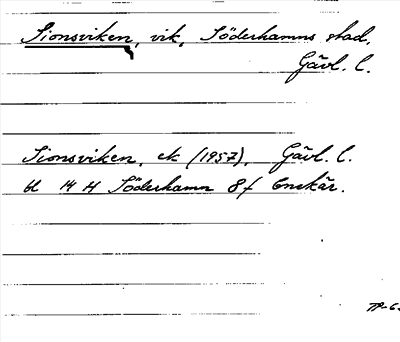 Sionsviken, vik, Söderhamns stad,
Gävl. l.
Sionsviken, ek (1957), Gävl. l.
bl 14 H Söderhamn 8 f Enskär.